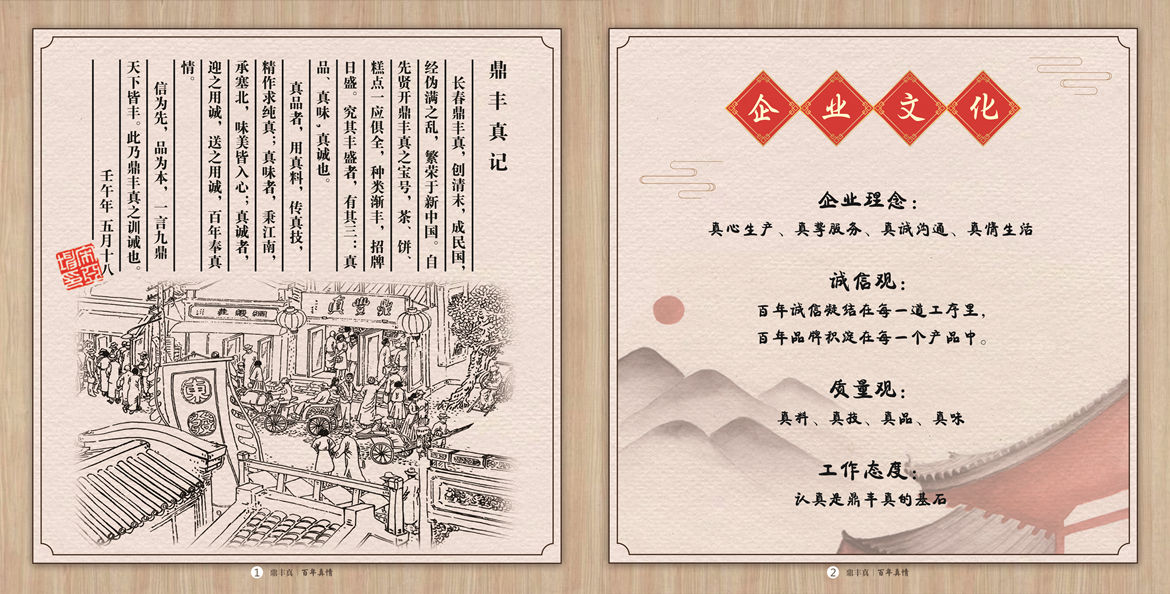 鼎丰真记
长春鼎丰真，创清末，成民国，
经伪满之乱，繁荣于新中国。自
先贤开鼎丰真之宝号，茶、饼、
糕点一应俱全，种类渐丰，招牌
日盛。究其丰盛者，有其三：真
品、真味，真诚也。
真品者，用真料，传真技，
精作求纯真；真味者，秉江南，
承塞北，味美皆入心；真诚者，
迎之用诚，送之用诚，百年奉真
情。
信为先，品为本，一言九鼎
天下皆丰。此乃鼎丰真之训诫也。
壬午年 五月十八
鼎豐真
1 鼎丰真 | 百年真情
企业文化
企业理念：
真心生产、真挚服务、真诚沟通、真情生活
诚信观：
百年诚信凝结在每一道工序里，
百年品牌积淀在每一个产品中。
质量观：
真料、真技、真品、真味
工作态度：
认真是鼎丰真的基石
2 鼎丰真 | 百年真情